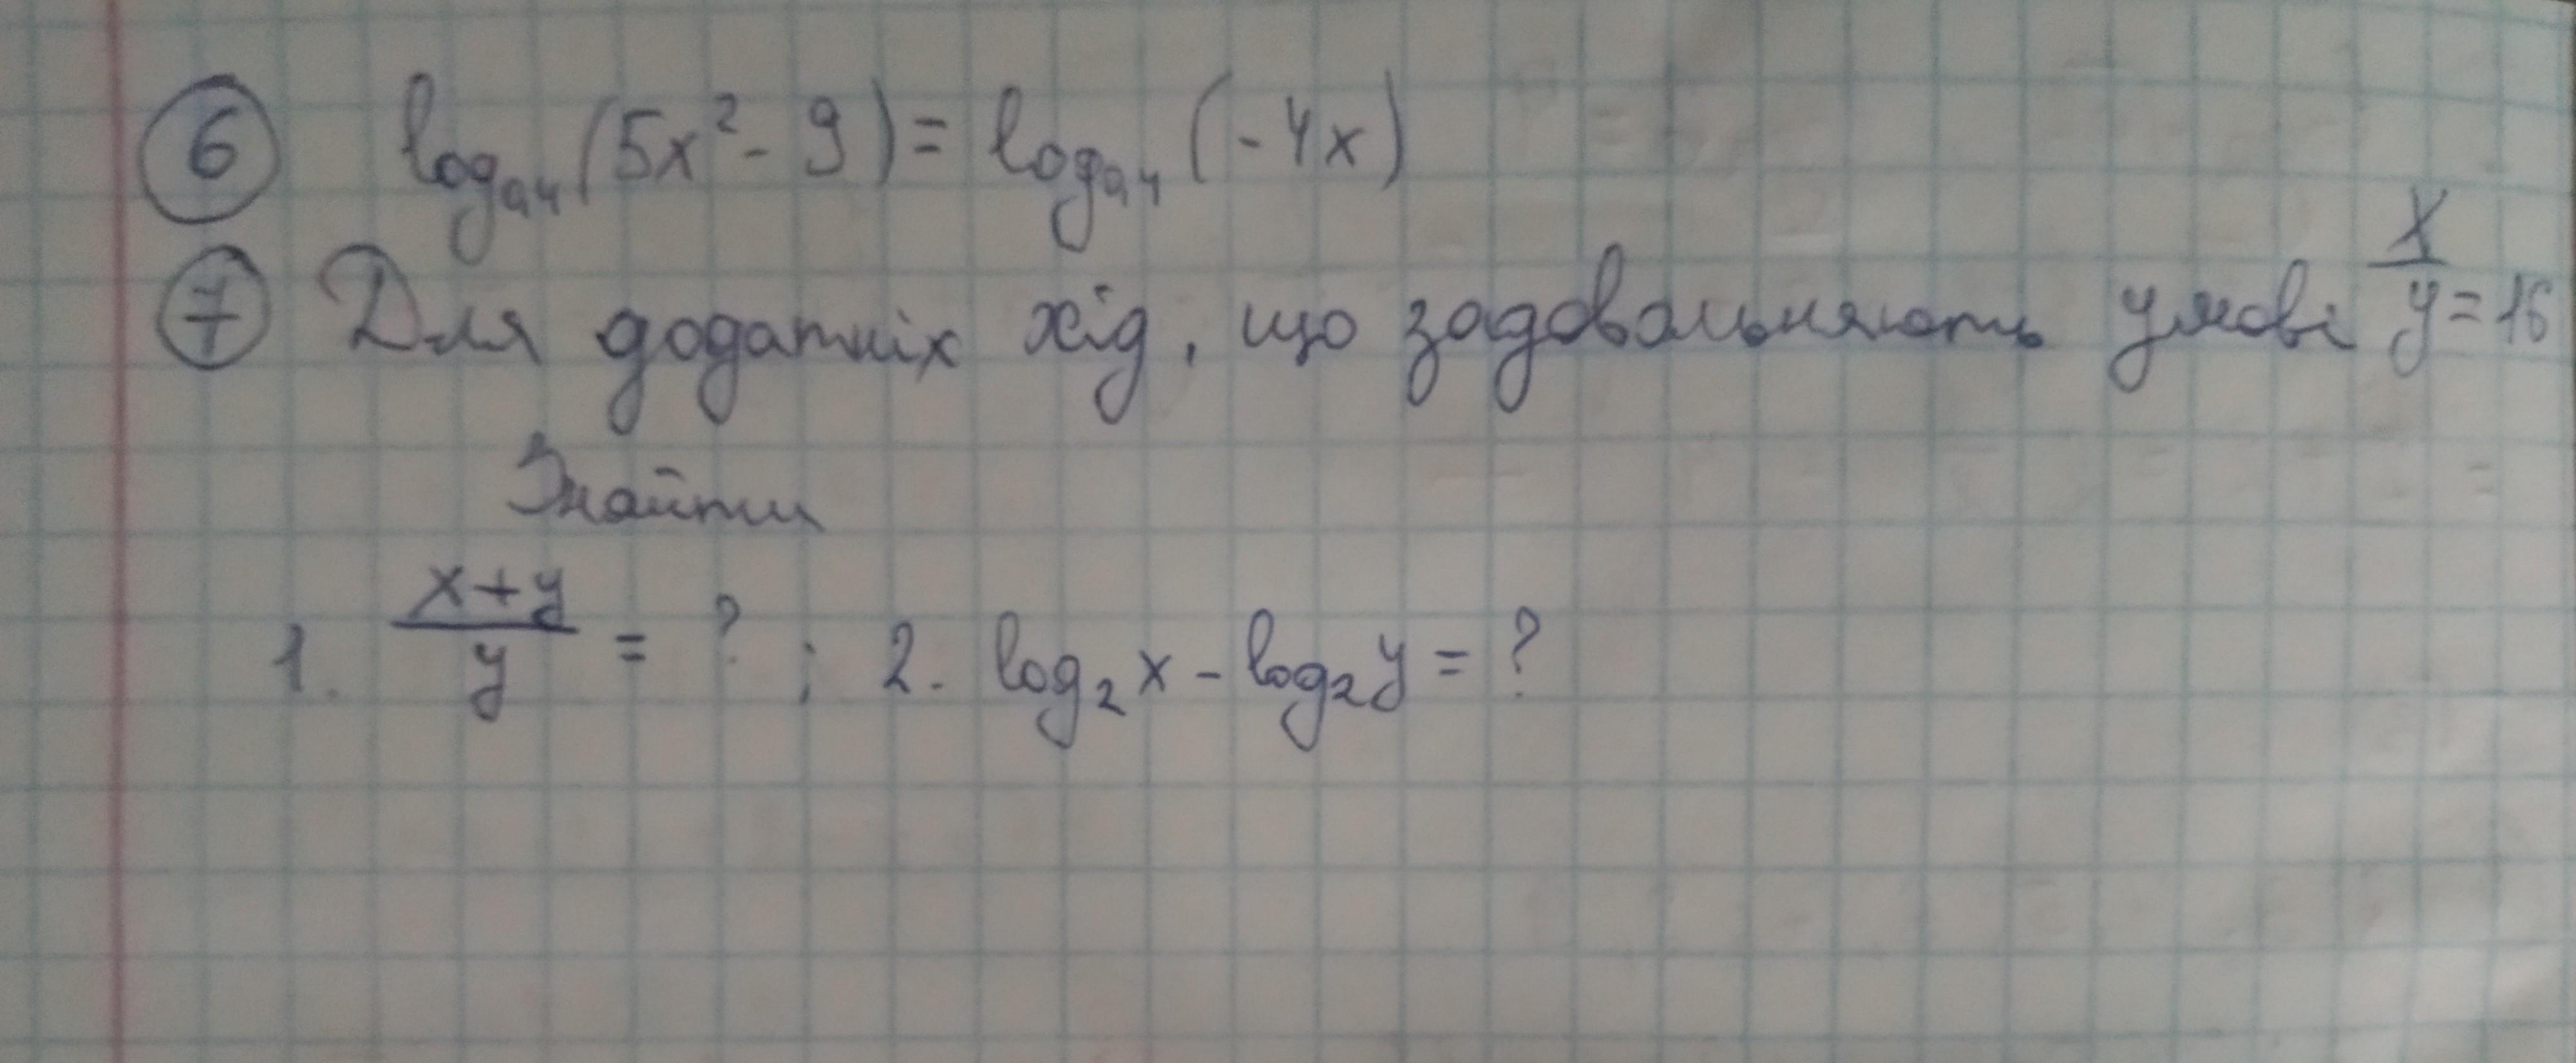 6 log₀,₄(5x² - 9) = log₀,₄(-4x)
7 Для додатніх хід, що задовольняють умові x/y = 16
Знайти
1. (x+y)/y = ? ; 2. log₂x - log₂y = ?